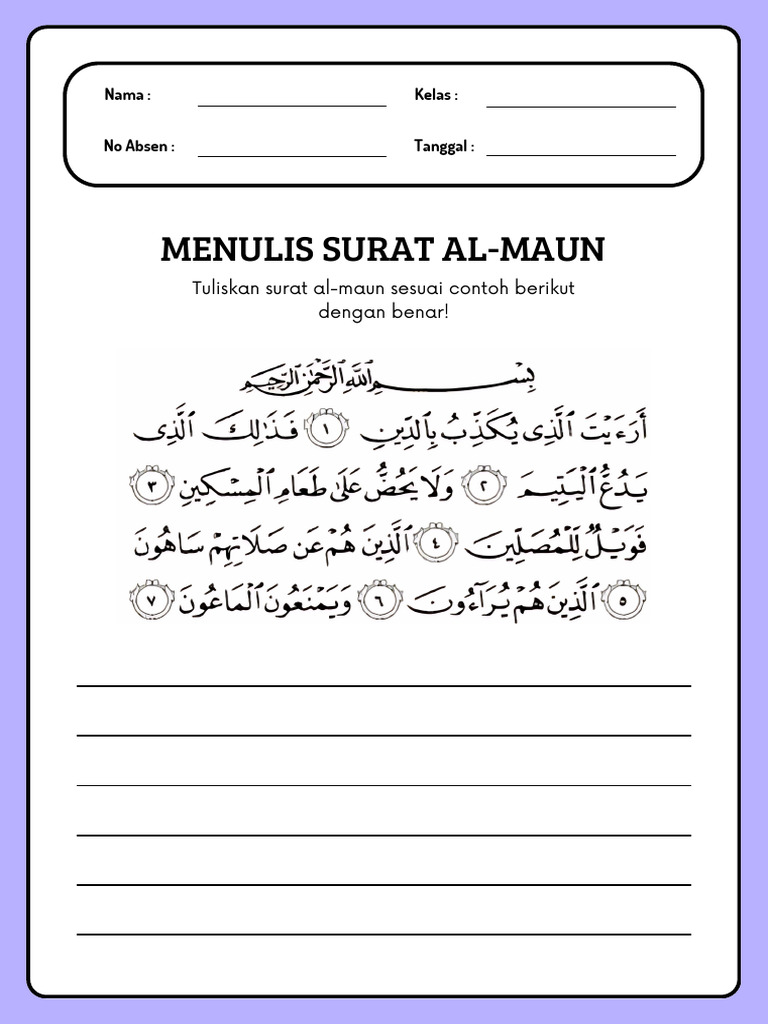 Nama : Kelas :
No Absen : Tanggal :
MENULIS SURAT AL-MAUN
Tuliskan surat al-maun sesuai contoh berikut
dengan benar!
بِسْمِ ٱللَّهِ ٱلرَّحْمَٰنِ ٱلرَّحِيمِ
أَرَءَيْتَ ٱلَّذِى يُكَذِّبُ بِٱلدِّينِ ١ فَذَٰلِكَ ٱلَّذِى
يَدُعُّ ٱلْيَتِيمَ ٢ وَلَا يَحُضُّ عَلَىٰ طَعَامِ ٱلْمِسْكِينِ ٣
فَوَيْلٌ لِّلْمُصَلِّينَ ٤ ٱلَّذِينَ هُمْ عَن صَلَاتِهِمْ سَاهُونَ
٥ ٱلَّذِينَ هُمْ يُرَآءُونَ ٦ وَيَمْنَعُونَ ٱلْمَاعُونَ ٧